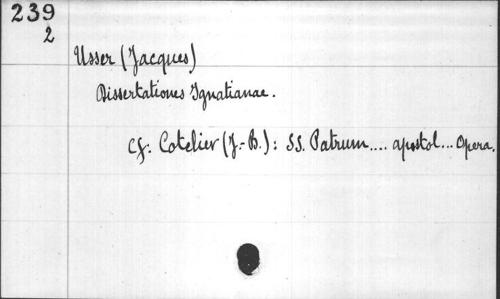 239
2
Usser (Jacques)
Dissertationes Ignatianae.
cf: Cotelier (J.-B.): SS. Patrum.... apostol... Opera.